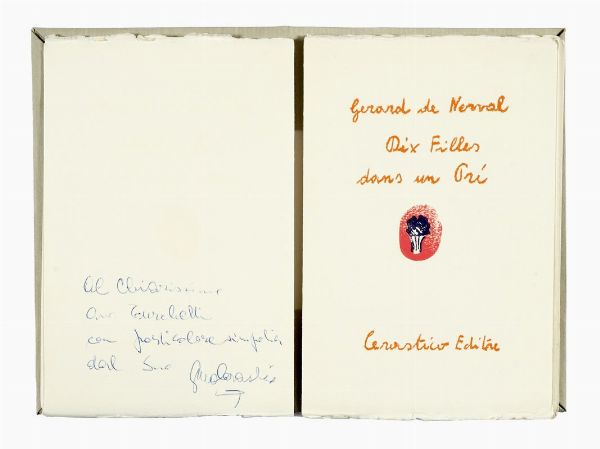 Al Chiarissimo
con particolare simpatia
dal Suo
Gerard de Nerval
Dix Filles
dans un Pré
Cerastico Editore